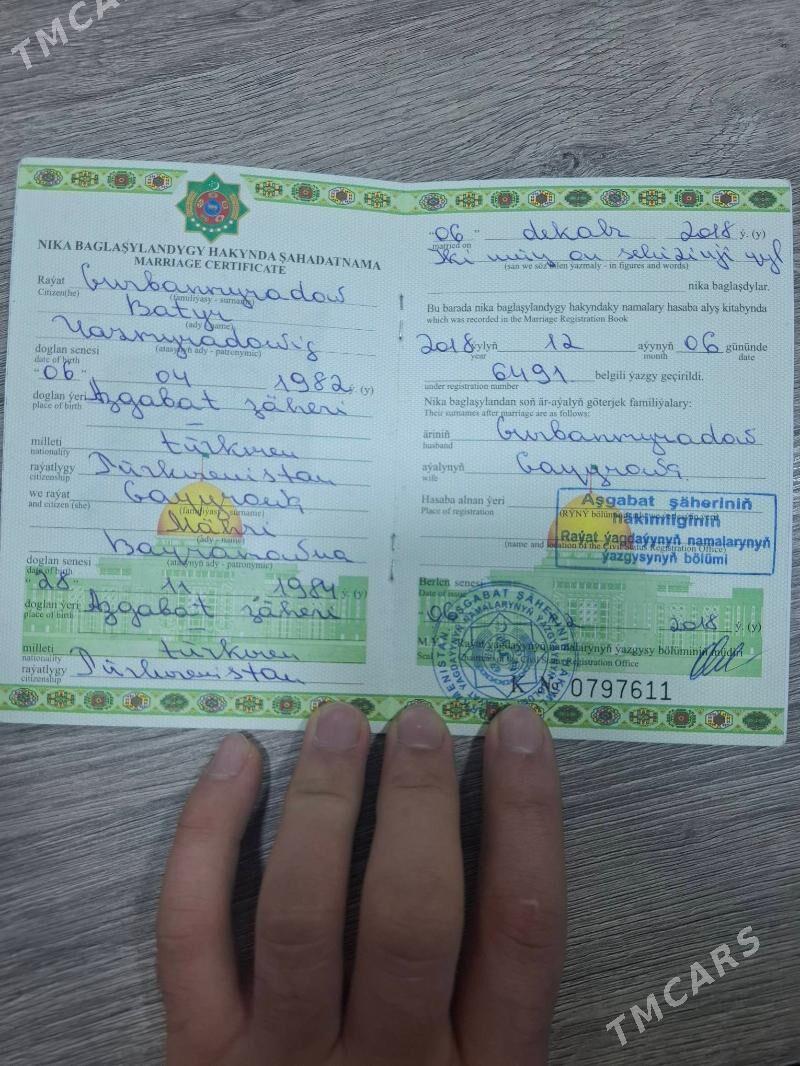 TMCARS
NIKA BAGLAŞYLANDYGY HAKYNDA ŞAHADATNAMA
MARRIAGE CERTIFICATE
Raýat Gurbanmyradow
Citizen(he) (familiýasy - surname)
Batyr
(ady - name)
Nazmyradowiç
(atasynyň ady - patronymic)
doglan senesi
date of birth
"06" 04 1982 ý. (y)
doglan ýeri Aşgabat şäheri
place of birth
milleti türkmen
nationality
raýatlygy Türkmenistan
citizenship
we raýat Gaýypowa
and citizen (she) (familiýasy - surname)
Mähri
(ady - name)
Baýramowna
(atasynyň ady - patronymic)
doglan senesi
date of birth
"28" 11 1984 ý. (y)
doglan ýeri Aşgabat şäheri
place of birth
milleti türkmen
nationality
raýatlygy Türkmenistan
citizenship
"06" dekabr 2018 ý. (y)
married on
Iki müň on sekizinji ýyl
(san we söz bilen ýazmaly - in figures and words)
nika baglaşdylar.
Bu barada nika baglaşylandygy hakyndaky namalary hasaba alyş kitabynda
which was recorded in the Marriage Registration Book
2018 ýylyň 12 aýynyň 06 gününde
year month date
6491 belgili ýazgy geçirildi.
under registration number
Nika baglaşylandan soň är-aýalyň göterjek familiýalary:
Their surnames after marriage are as follows:
äriniň Gurbanmyradow
husband
aýalynyň
wife
Hasaba alnan ýeri
Place of registration
Aşgabat şäheriniň
häkimliginiň
Raýat ýagdaýynyň namalarynyň
ýazgysynyň bölümi
(name and location of the Civil Status Registration Office)
Berlen senesi
Date of issue
06 2018 ý. (y)
M.Ý. Raýat ýagdaýynyň namalarynyň ýazgysy bölüminiň müdiri
Registration Office
K № 0797611
TMCARS